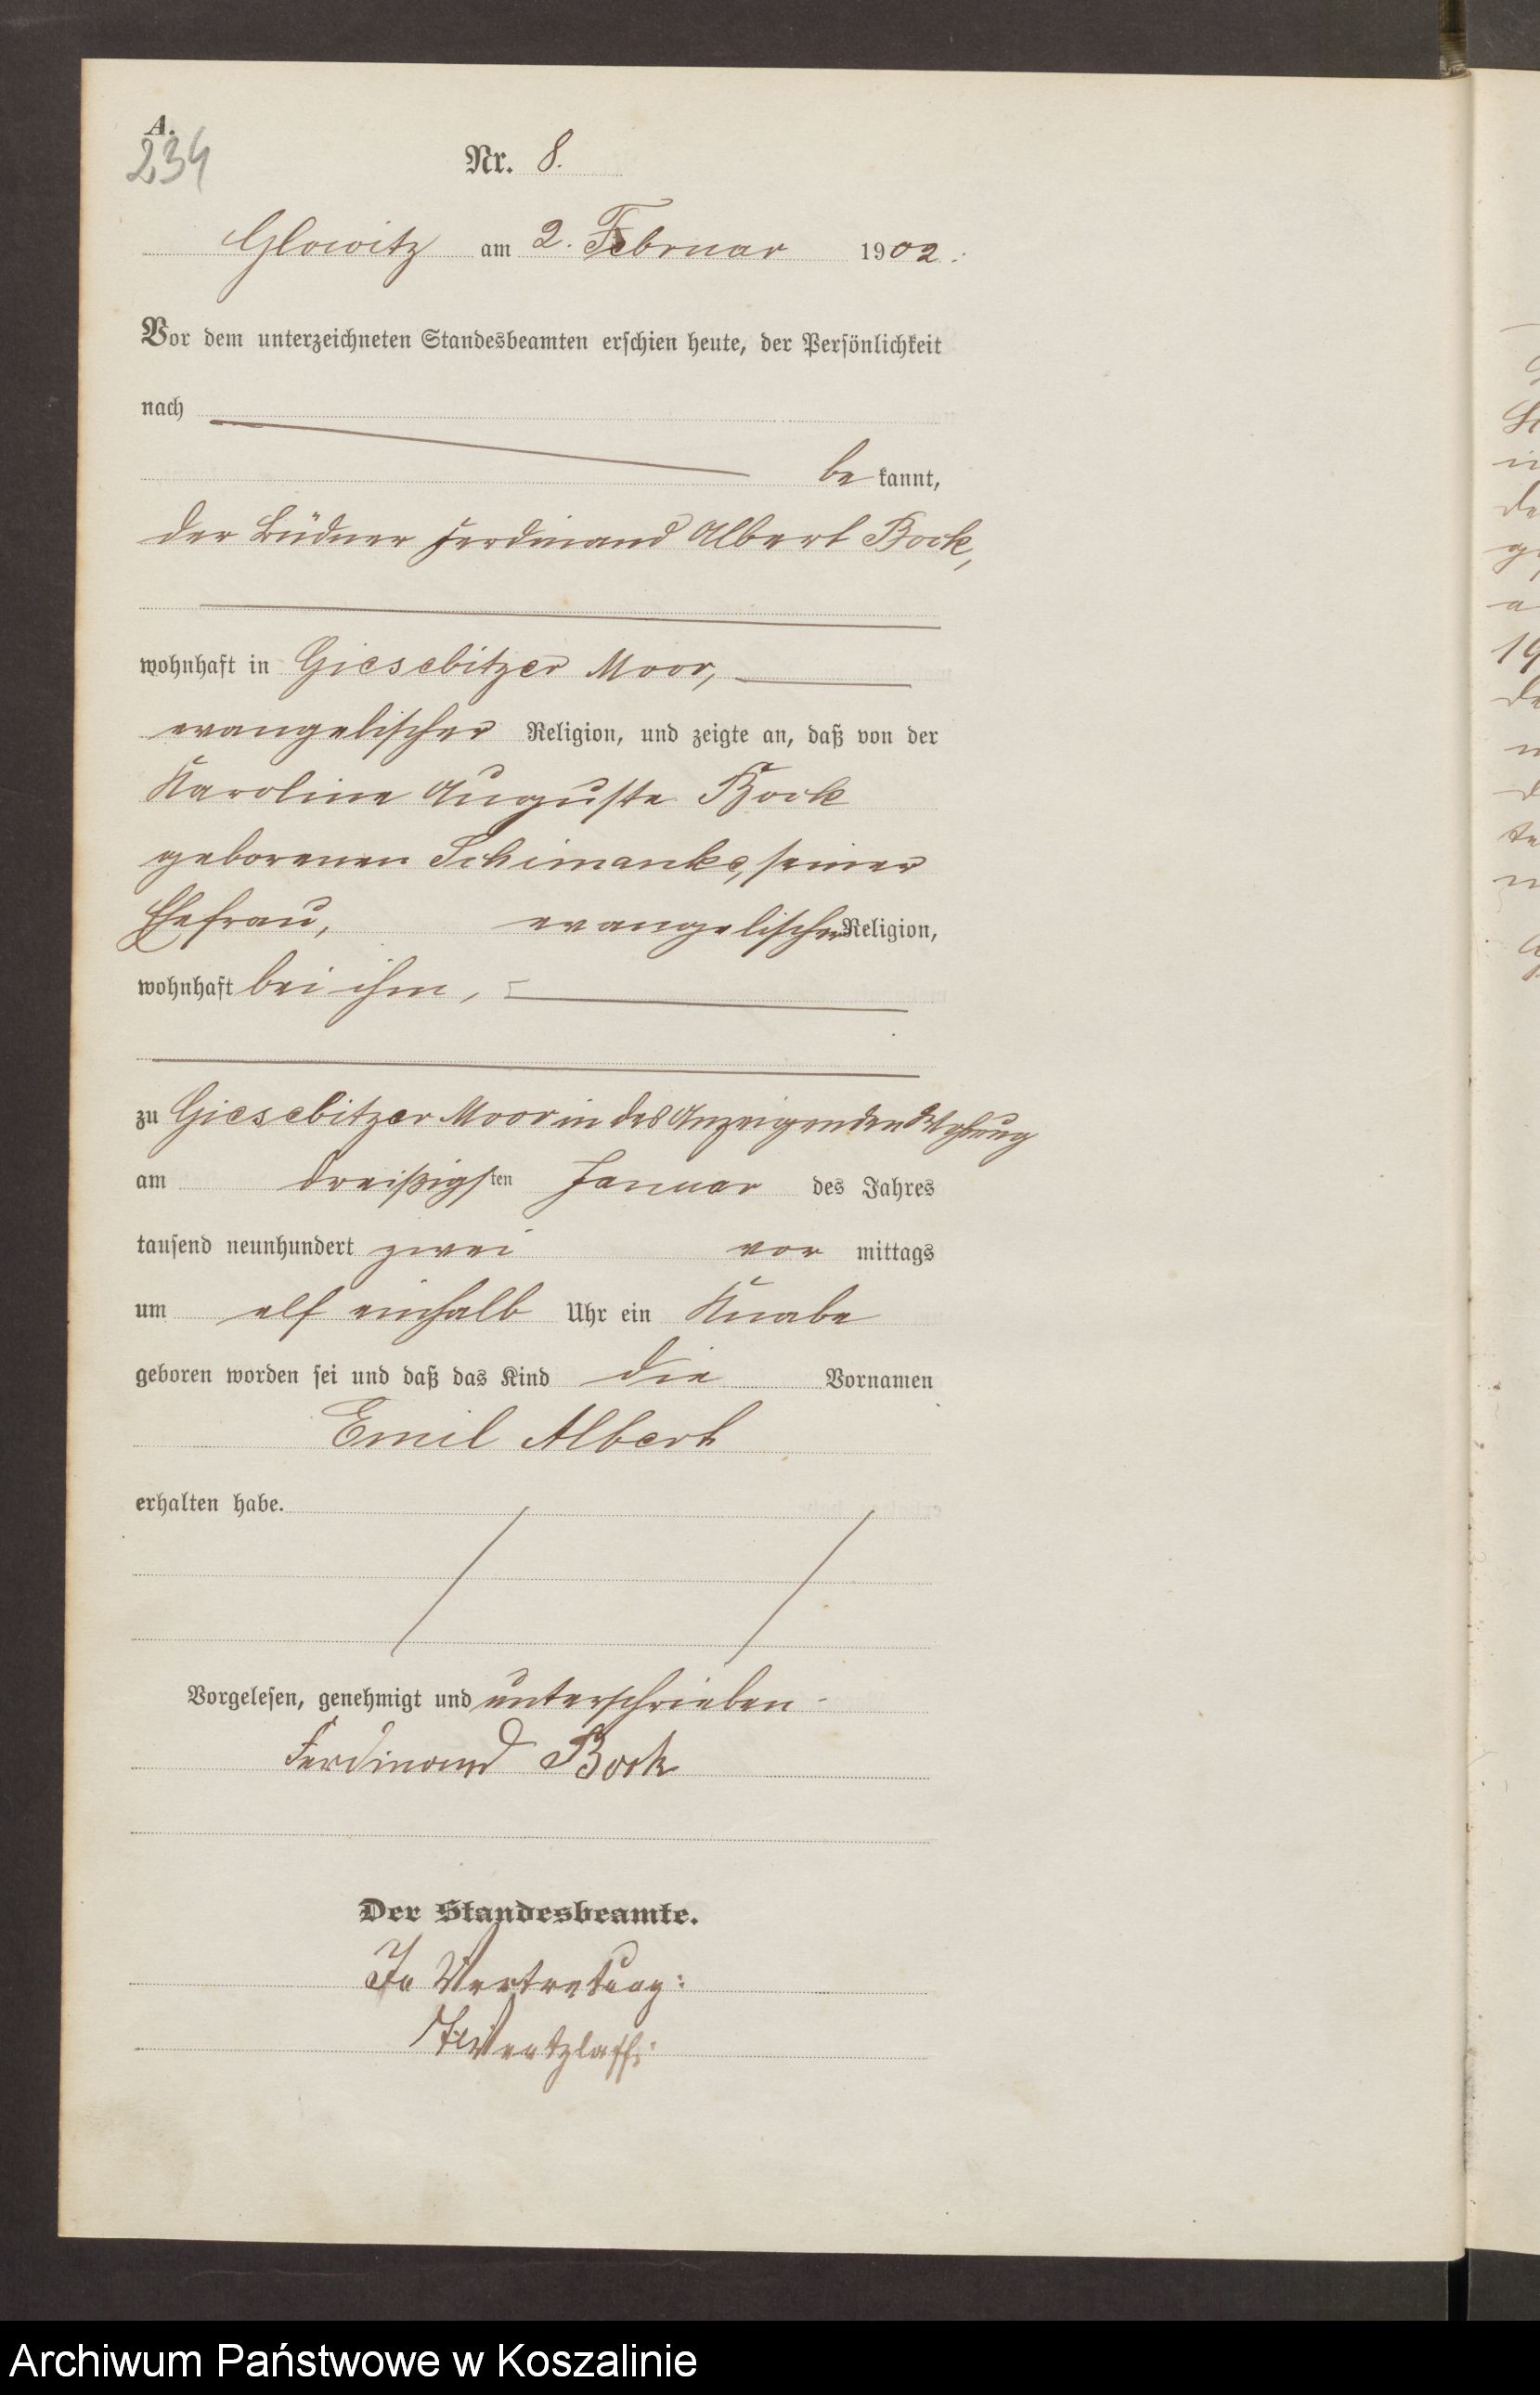 A.
234
Nr. 8.
Glowitz am 2. Februar 1902.
Vor dem unterzeichneten Standesbeamten erschien heute, der Persönlichkeit
nach
be kannt,
der Büdner Ferdinand Albert Bock,
wohnhaft in Giesebitzer Moor,
evangelischer Religion, und zeigte an, daß von der
Karoline Auguste Bock
geborenen Schimanke, seiner
Ehefrau, evangelischer Religion,
wohnhaft bei ihm,
zu Giesebitzer Moor in des Anzeigenden Wohnung
am dreißigsten Januar des Jahres
tausend neunhundert zwei vor mittags
um elf einhalb Uhr ein Knabe
geboren worden sei und daß das Kind die Vornamen
Emil Albert
erhalten habe.
Vorgelesen, genehmigt und unterschrieben
Ferdinand Bock
Der Standesbeamte.
In Vertretung:
Archiwum Państwowe w Koszalinie